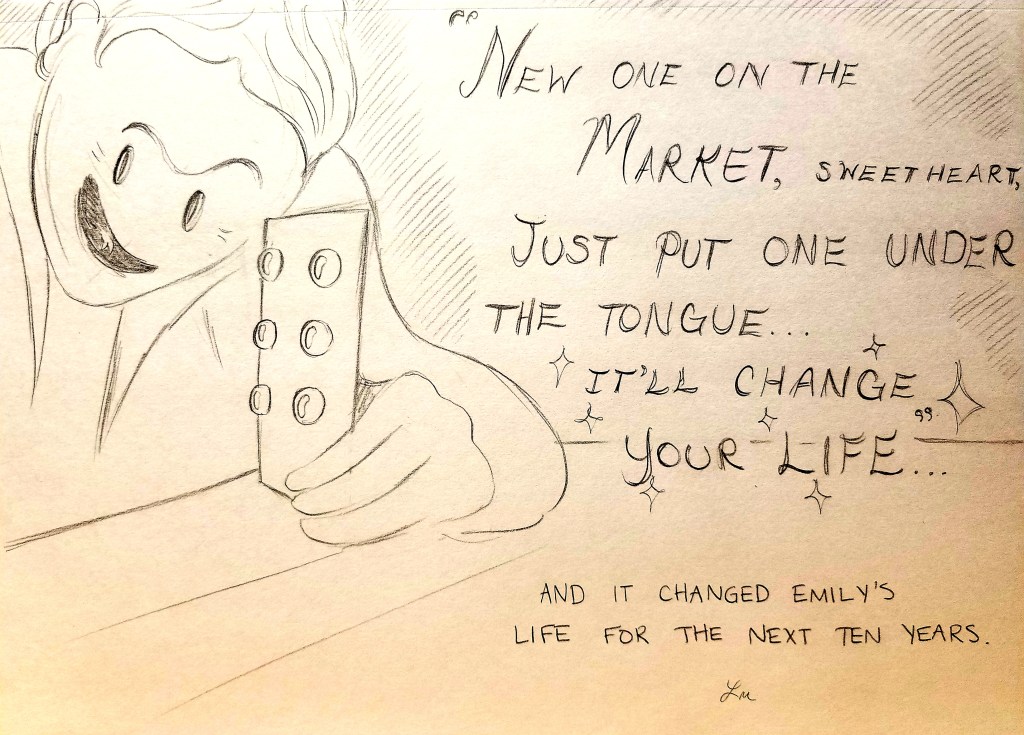 "NEW ONE ON THE
MARKET, SWEETHEART,
JUST PUT ONE UNDER
THE TONGUE...
IT'LL CHANGE
YOUR LIFE..."
AND IT CHANGED EMILY'S
LIFE FOR THE NEXT TEN YEARS.